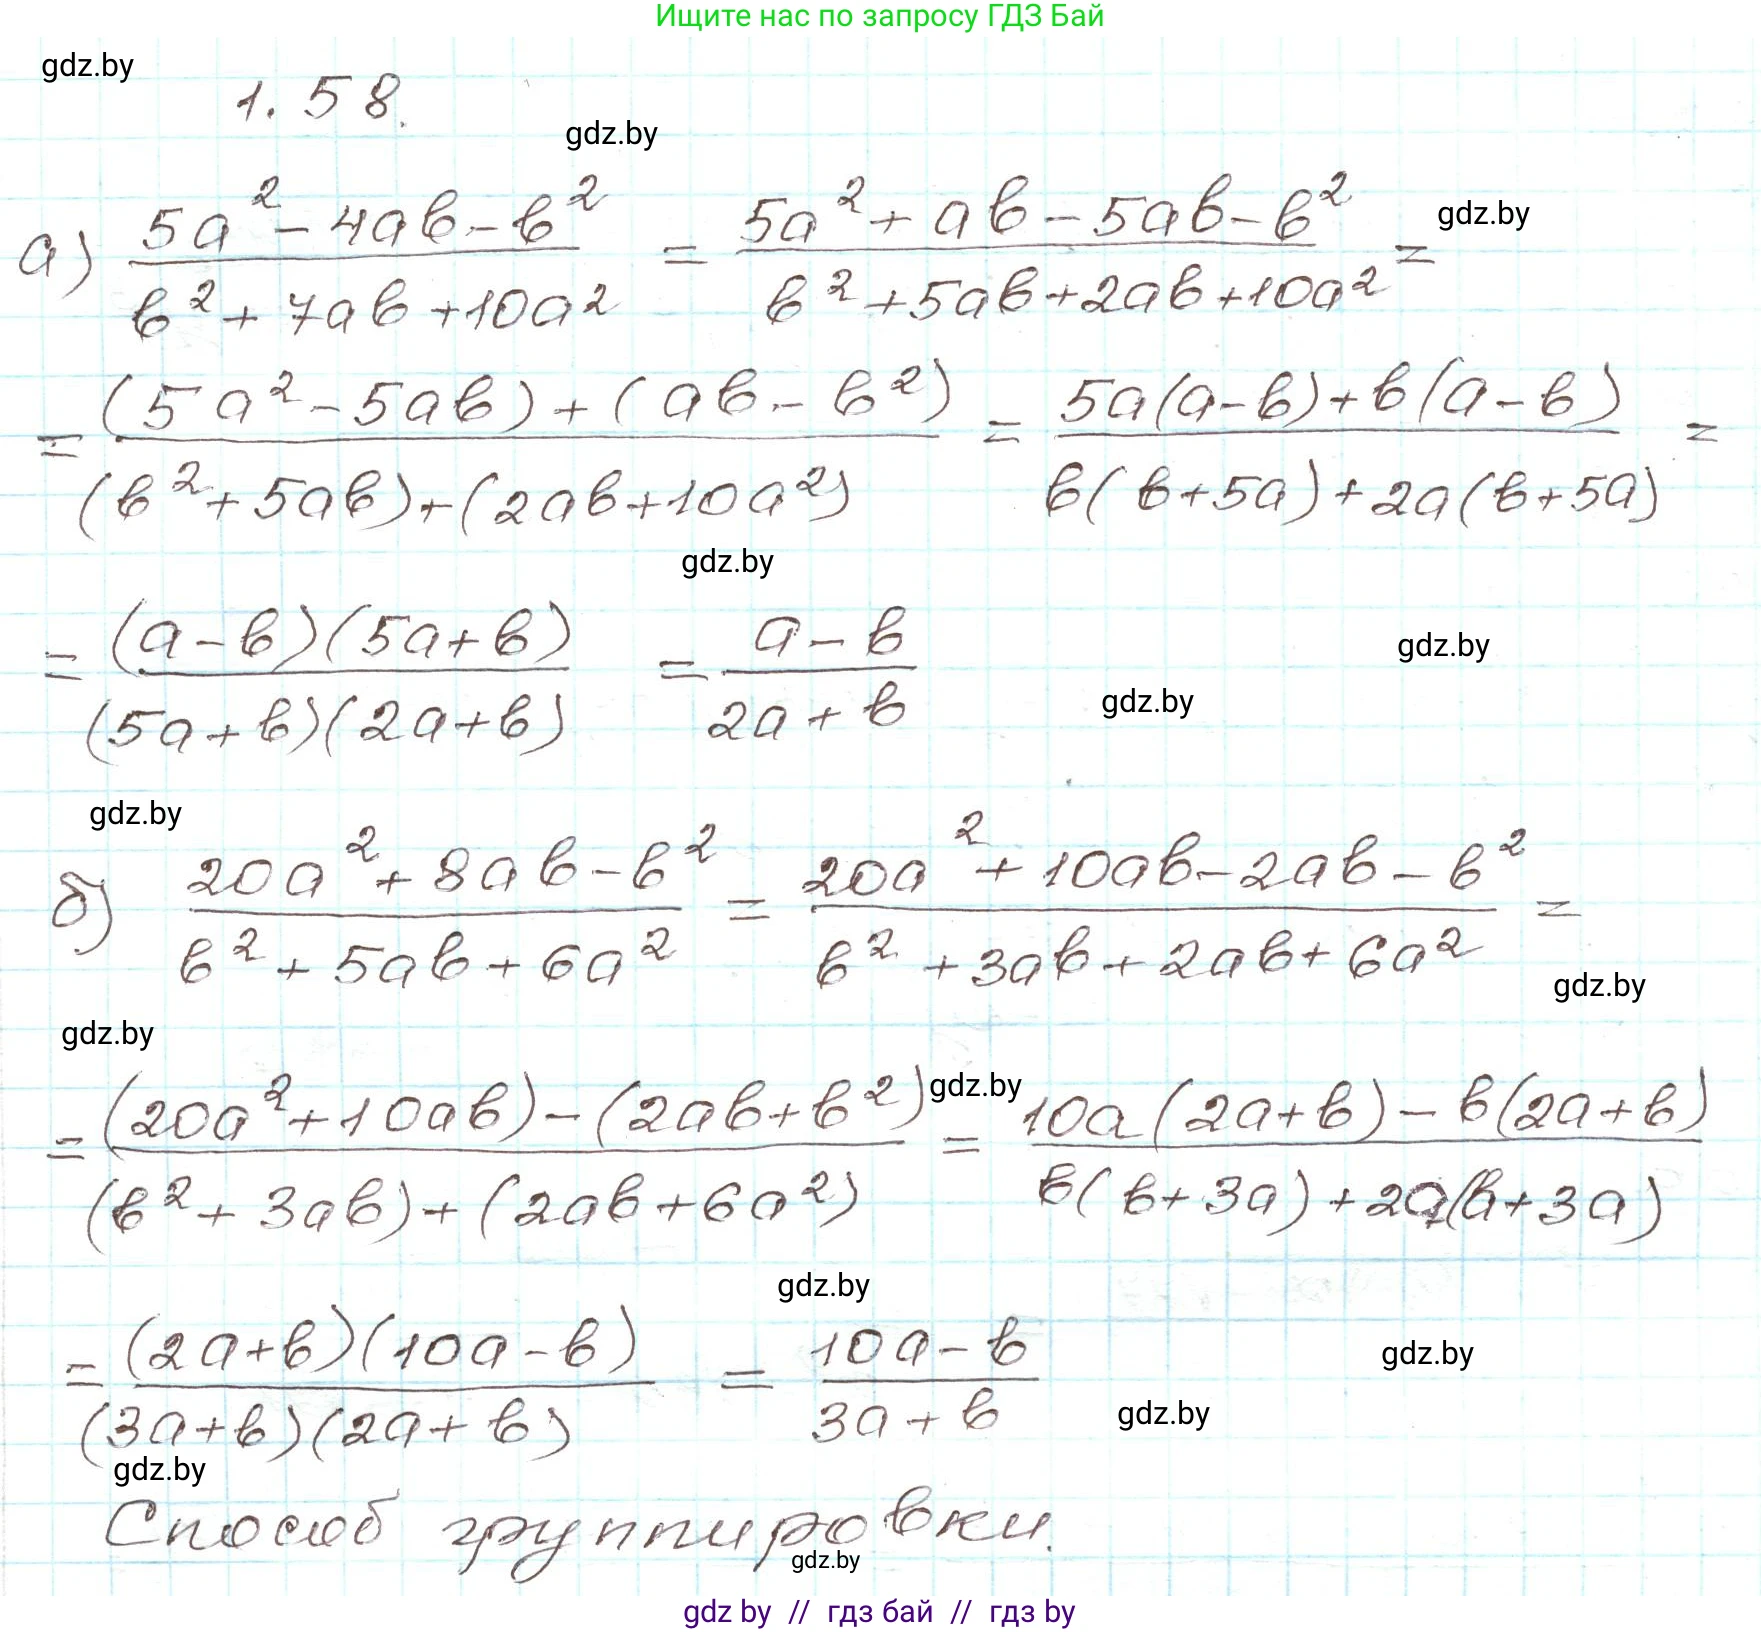 Ищите нас по запросу ГДЗ Бай
gdz.by
1.58.
gdz.by
а) (5a² - 4ab - b²)/(b² + 7ab + 10a²) = (5a² + ab - 5ab - b²)/(b² + 5ab + 2ab + 10a²) =
gdz.by
= ((5a² - 5ab) + (ab - b²))/((b² + 5ab) + (2ab + 10a²)) = (5a(a - b) + b(a - b))/(b(b + 5a) + 2a(b + 5a)) =
gdz.by
= ((a - b)(5a + b))/((5a + b)(2a + b)) = (a - b)/(2a + b)
gdz.by
gdz.by
gdz.by
б) (20a² + 8ab - b²)/(b² + 5ab + 6a²) = (20a² + 10ab - 2ab - b²)/(b² + 3ab + 2ab + 6a²) =
gdz.by
gdz.by
= ((20a² + 10ab) - (2ab + b²))/((b² + 3ab) + (2ab + 6a²)) = (10a(2a + b) - b(2a + b))/(b(b + 3a) + 2a(b + 3a))
gdz.by
gdz.by
= ((2a + b)(10a - b))/((3a + b)(2a + b)) = (10a - b)/(3a + b)
gdz.by
gdz.by
gdz.by
Способ группировки.
gdz.by
gdz by // гдз бай // гдз by